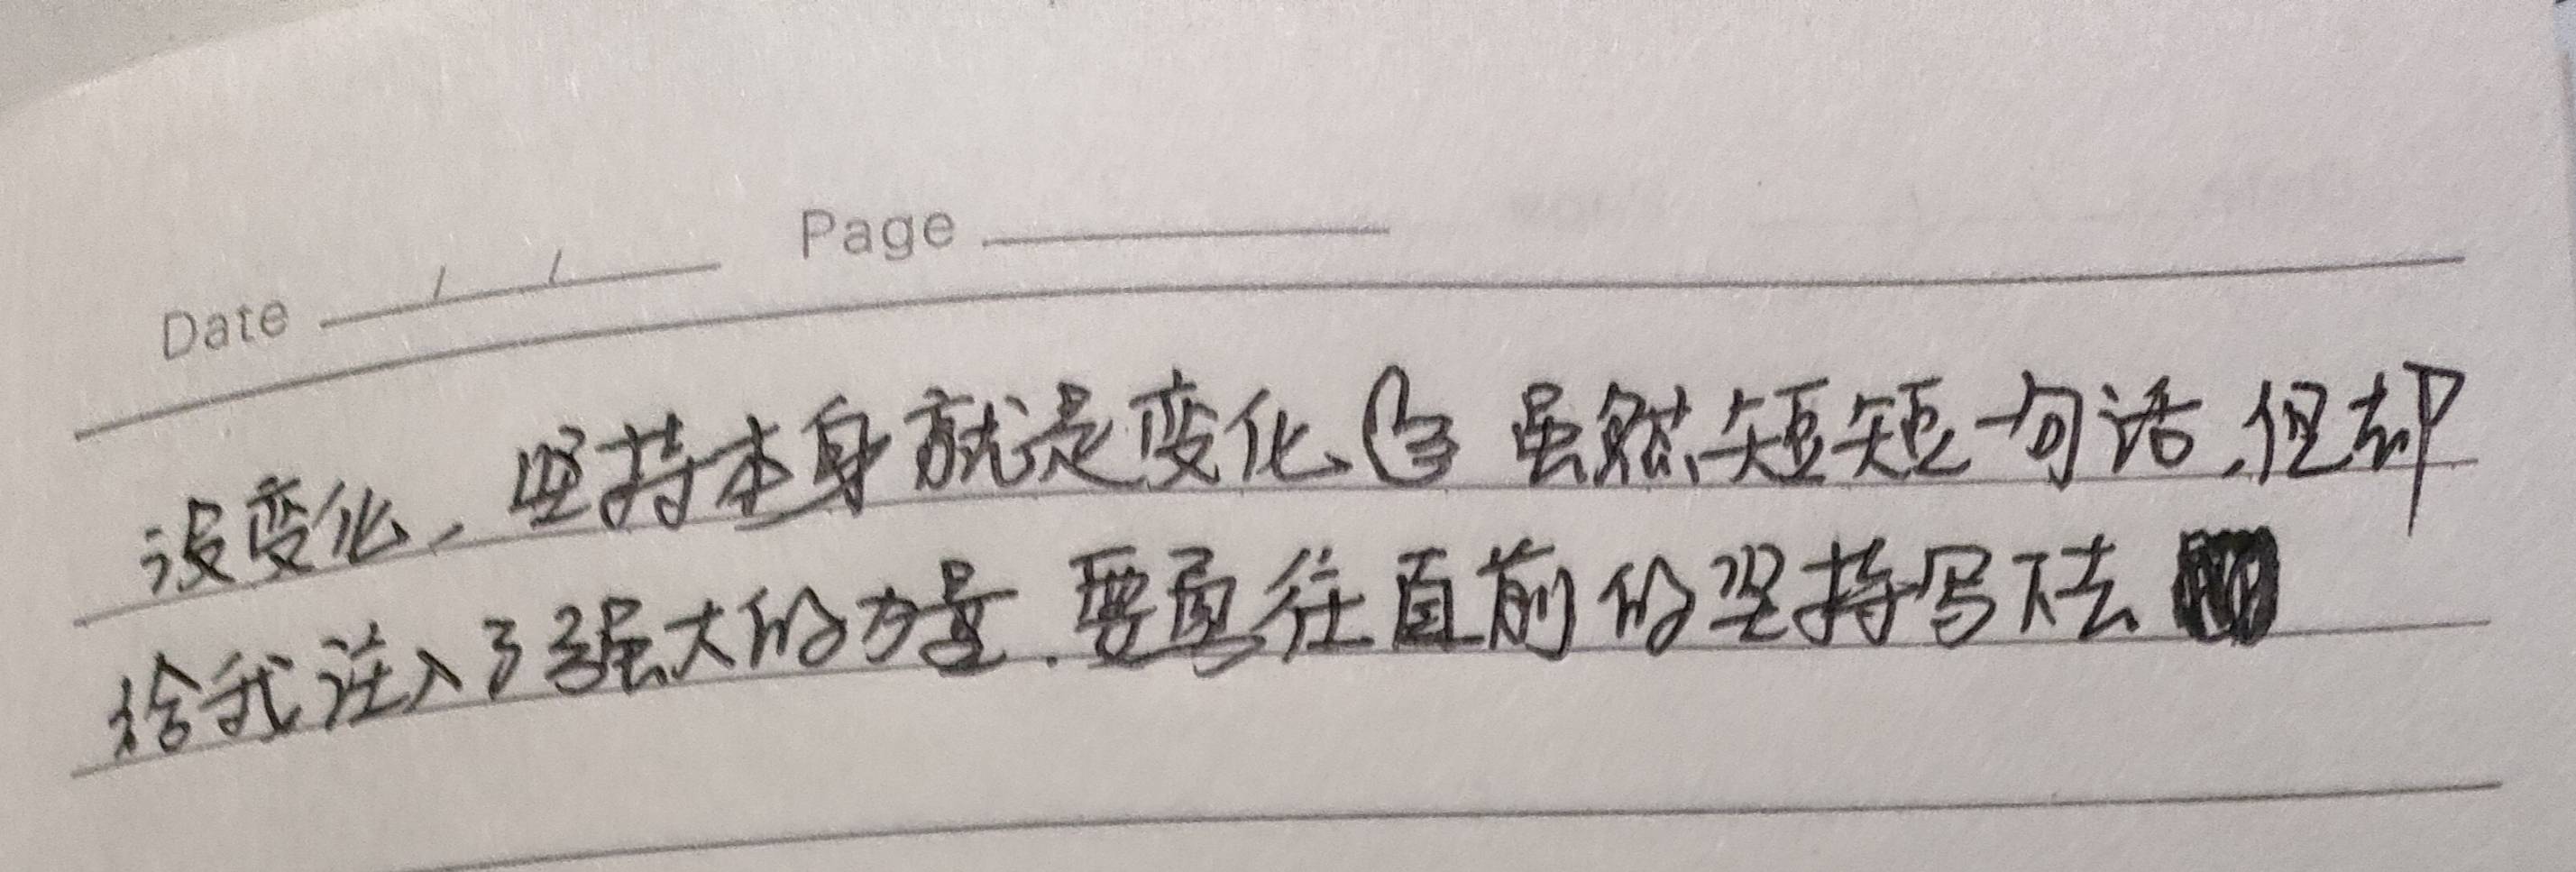 Date / / Page
没变化,坚持本身就是变化、👍 虽然短短一句话,但却
给我注入了强大的力量.要勇往直前的坚持写下去